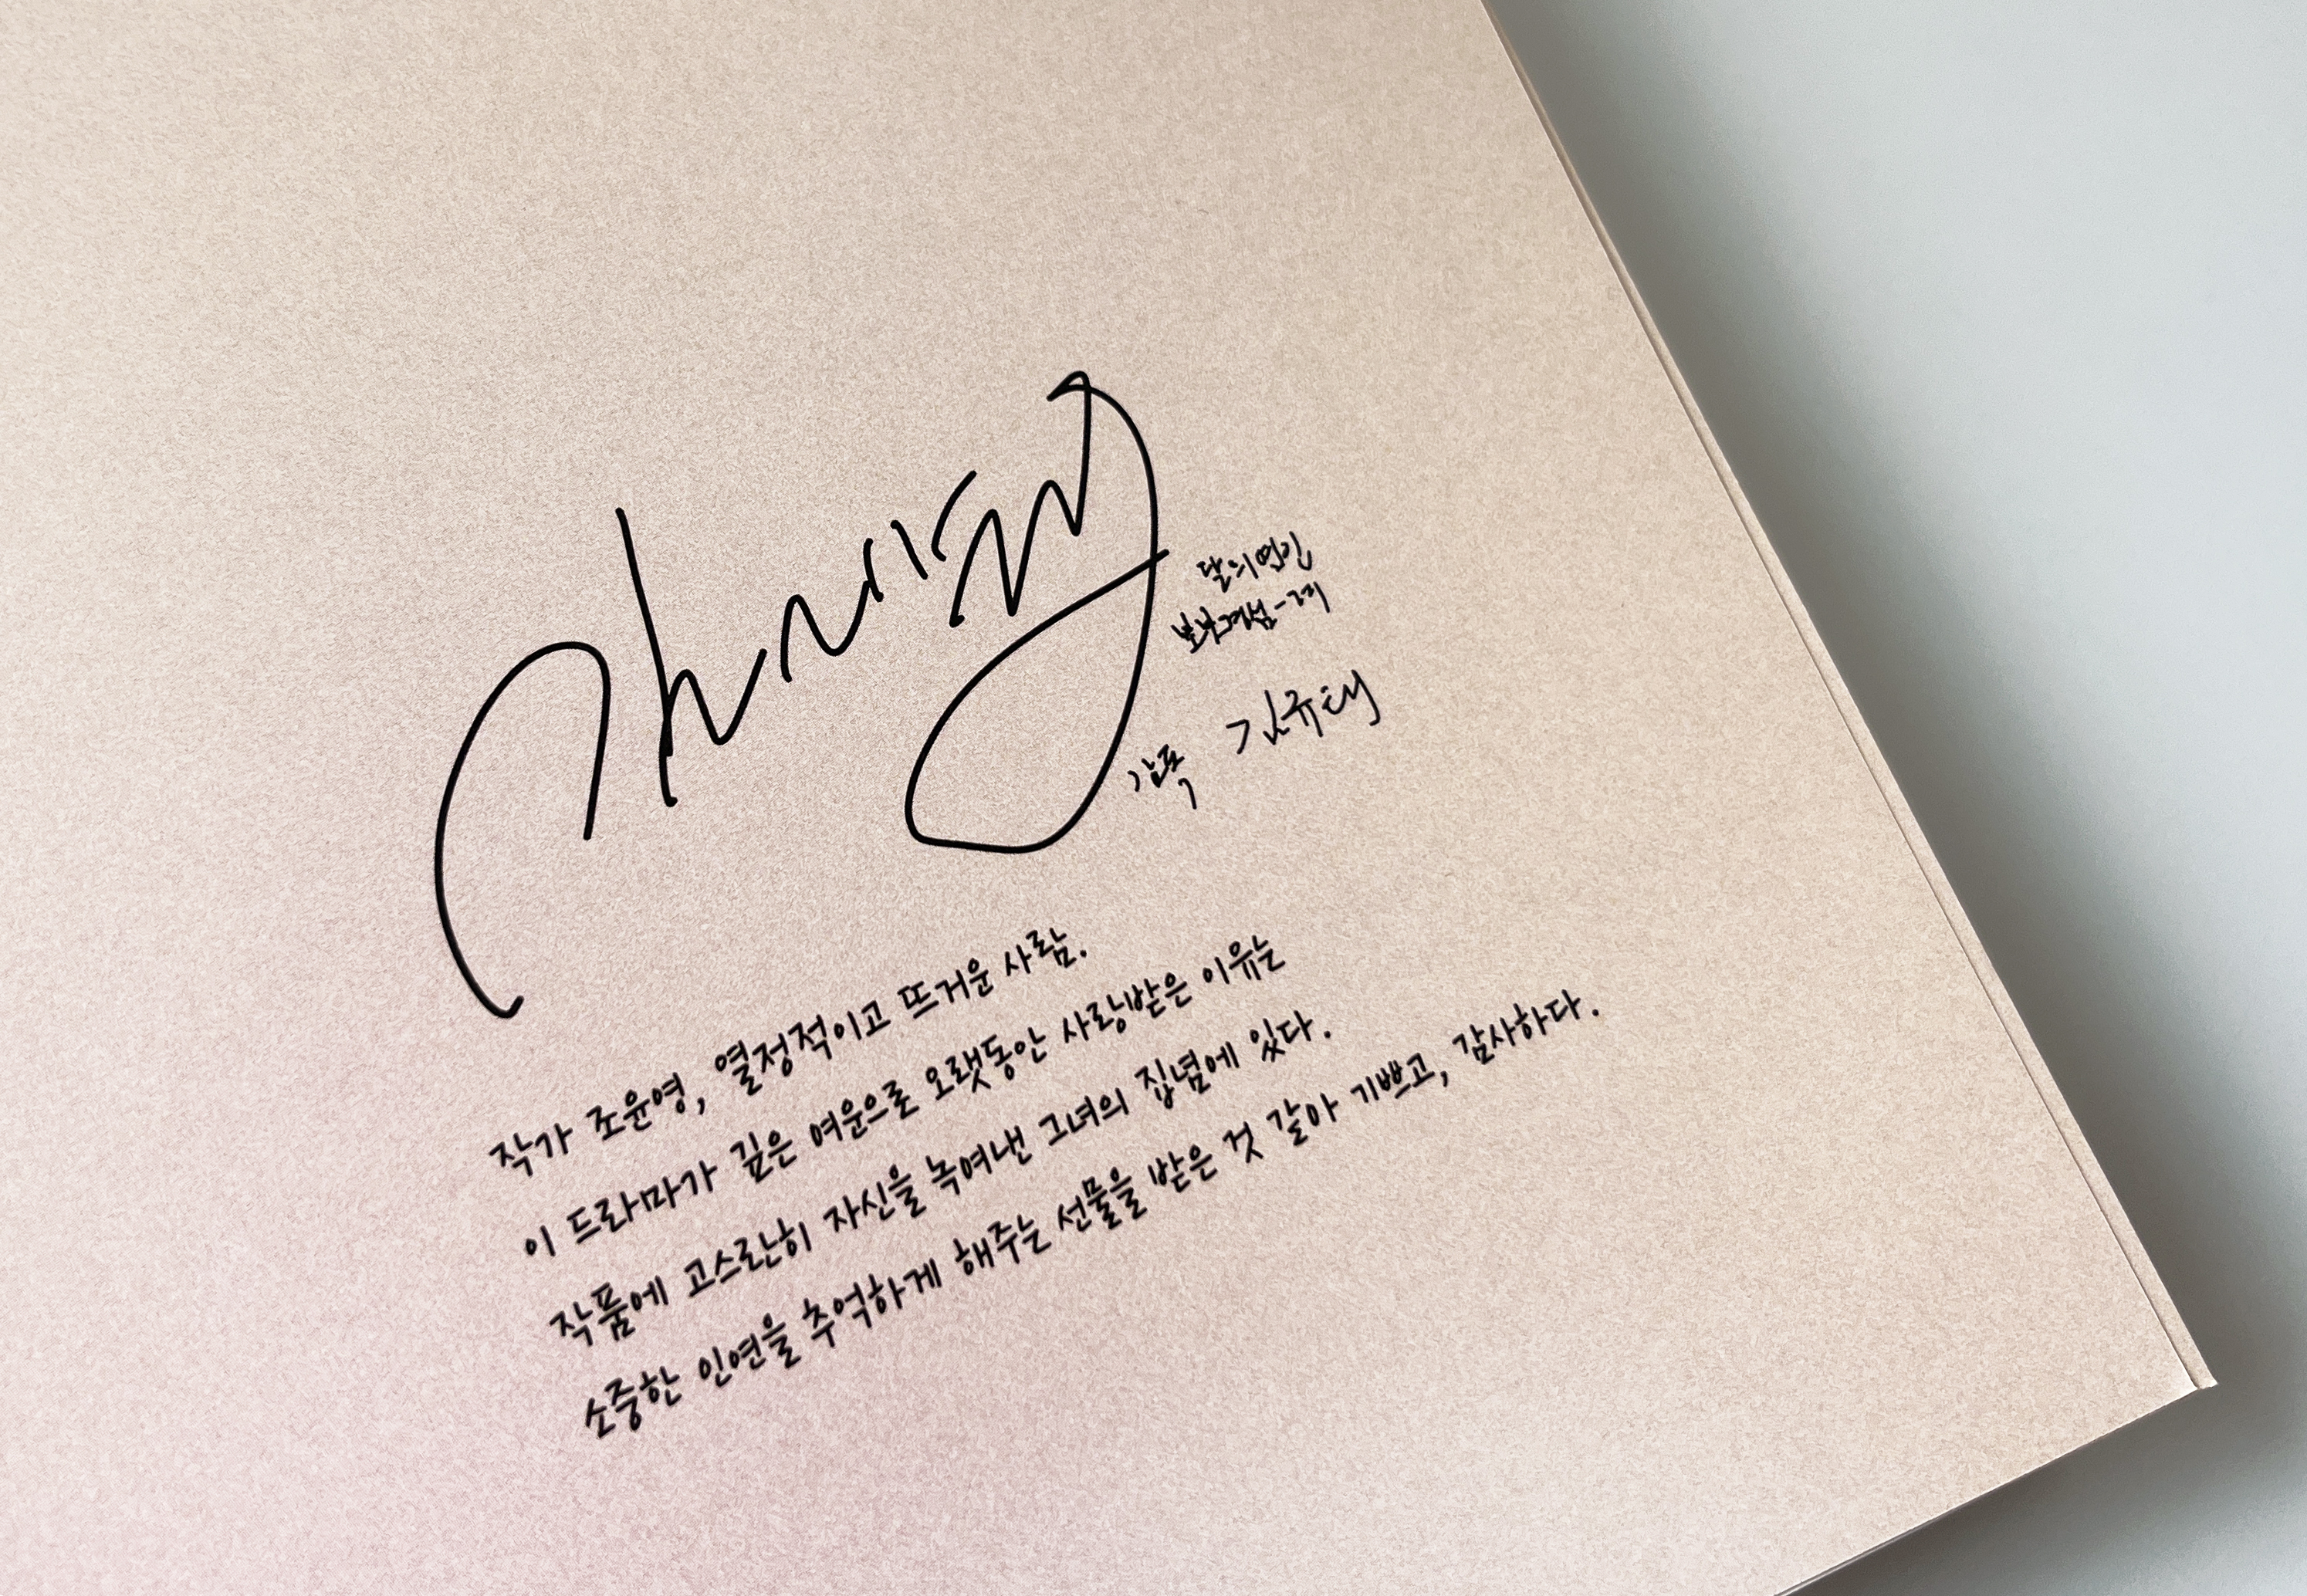 달의연인
보보경심-려
감독 김규태
작가 조윤영, 열정적이고 뜨거운 사람.
이 드라마가 깊은 여운으로 오랫동안 사랑받은 이유는
작품에 고스란히 자신을 녹여낸 그녀의 집념에 있다.
소중한 인연을 추억하게 해주는 선물을 받은 것 같아 기쁘고, 감사하다.